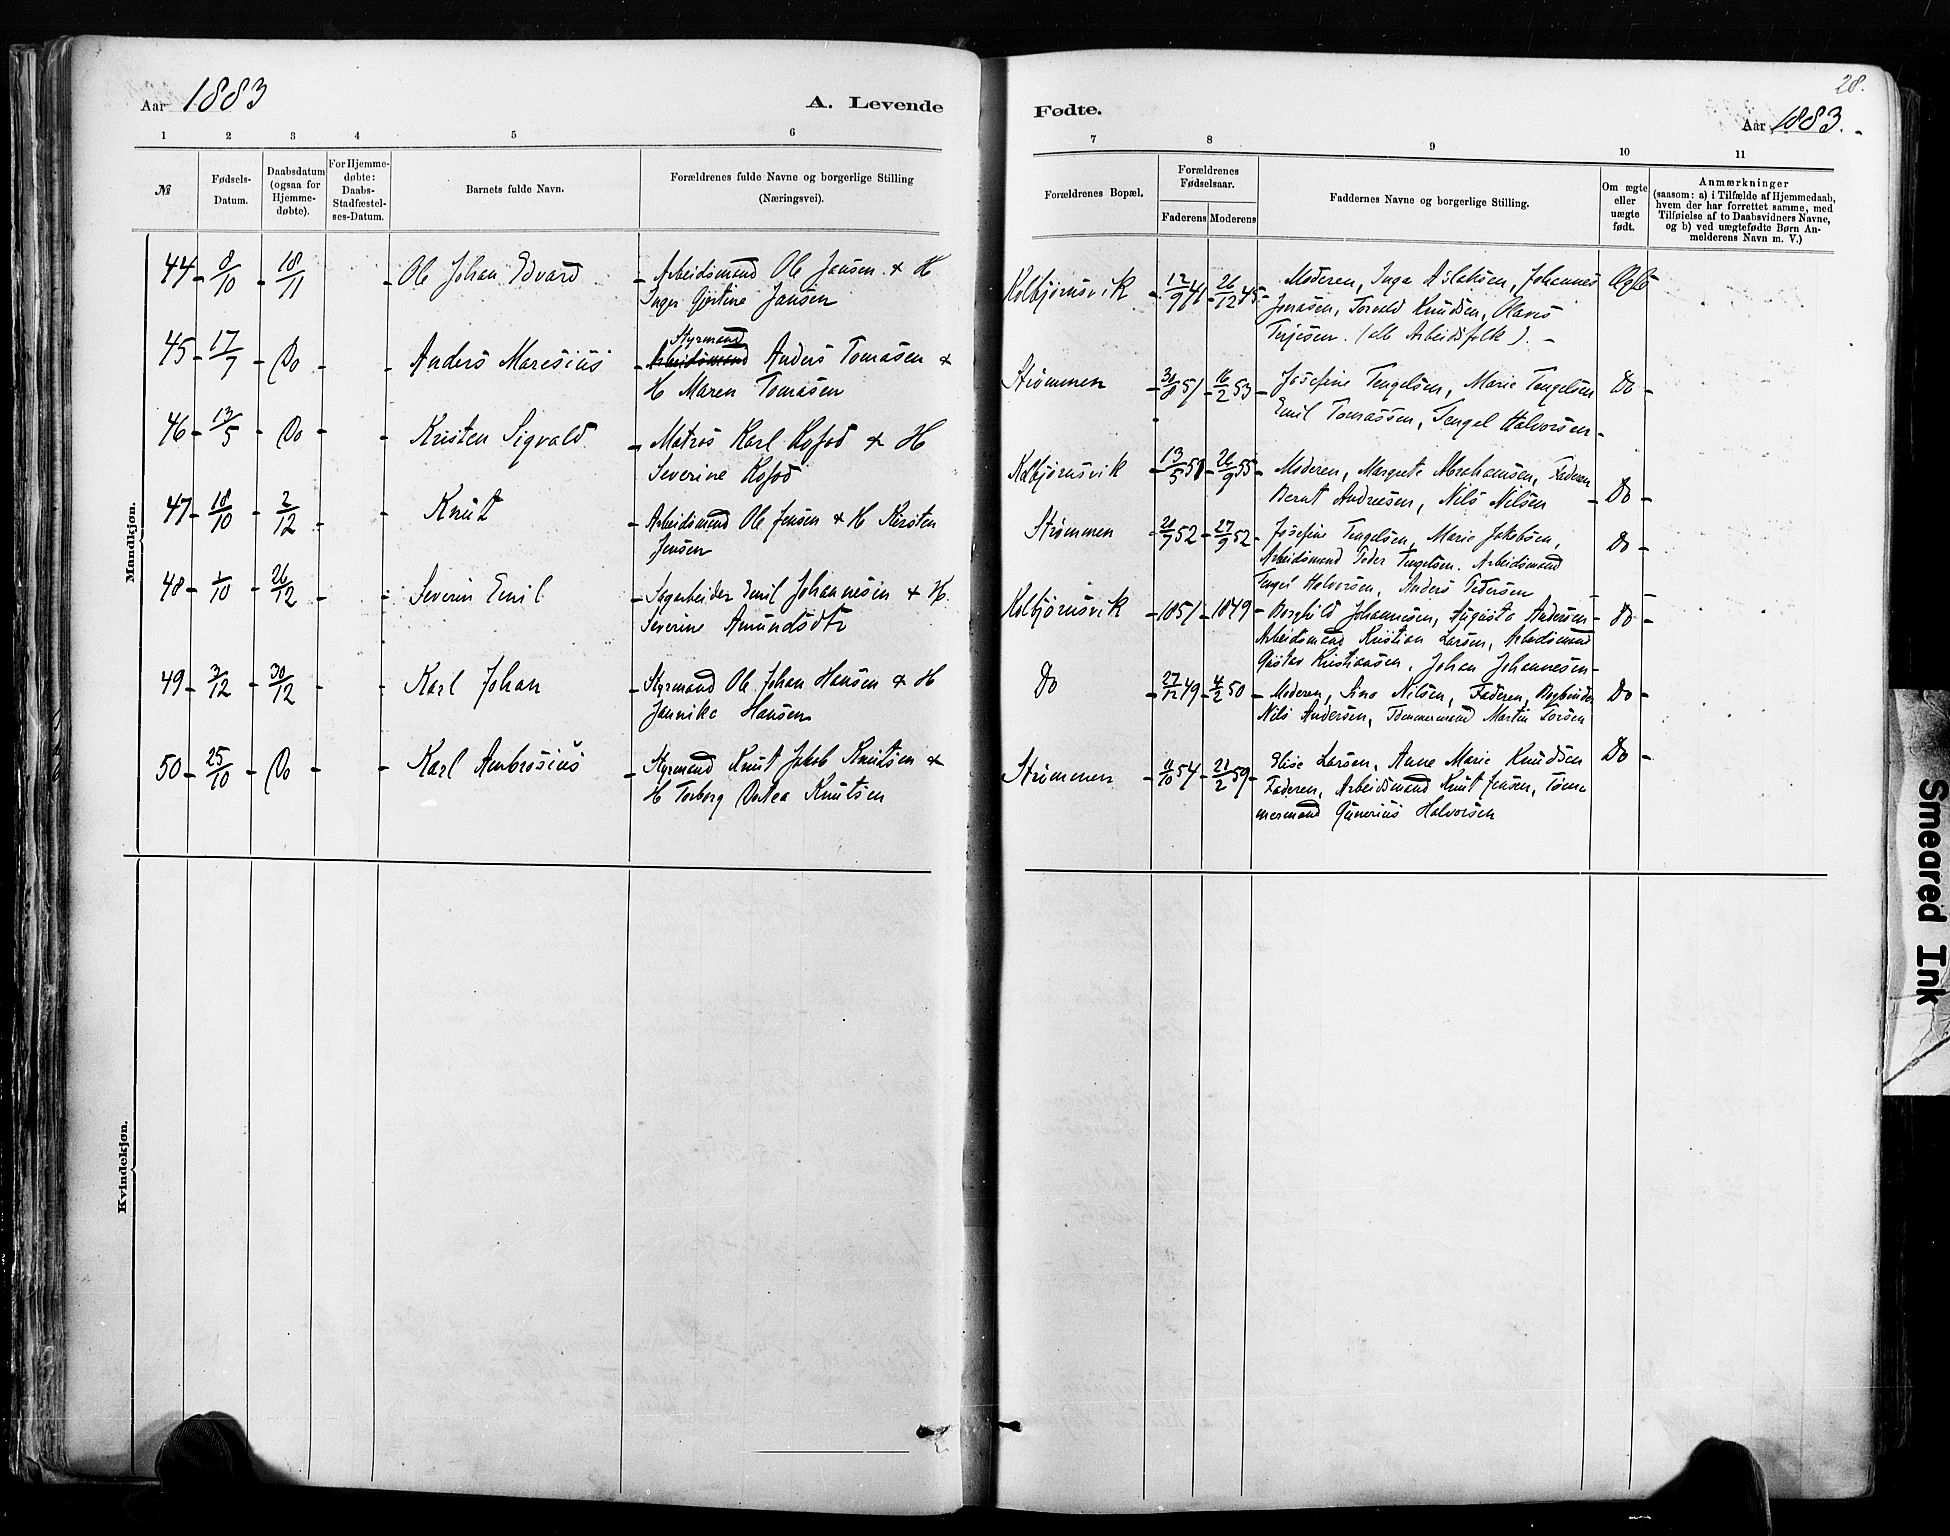 Aar 1883
A. Levende
1 2 3 4 5 6
№
Fødsels-
Datum.
Daabsdatum
(ogsaa for
Hjemme-
døbte).
For Hjemme-
døbte:
Daabs-
Stadfæstel-
ses-Datum.
Barnets fulde Navn.
Forældrenes fulde Navne og borgerlige Stilling
(Næringsvei).
Mandkjøn.
44 8/10 18/11 Ole Johan Edvard Arbeidsmand Ole Jansen & H
Inger Gjørtine Jansen
45 17/7 Do Anders Maresius Styrmand
Arbeidsmand Anders Tomasen &
H Maren Tomasen
46 13/5 Do Kristen Sigvald Matros Karl Kofod & H
Severine Kofod
47 18/10 2/12 Knut Arbeidsmand Ole Jensen & H Kirsten
Jensen
48 1/10 26/12 Severin Emil Sagarbeider Emil Johannesen & H.
Severine Amundsdtr
49 3/12 30/12 Karl Johan Styrmand Ole Johan Hansen & H
Jannike Hansen
50 25/10 Do Karl Ambrosius Styrmand Knut Jakob Knutsen &
H Torborg Dortea Knutsen
Kvindekjøn.
28.
Fødte.
Aar 1883.
7 8 9 10 11
Forældrenes Bopæl.
Forældrenes
Fødselsaar.
Faderens Moderens
Faddernes Navne og borgerlige Stilling.
Om ægte
eller
uægte
født.
Anmærkninger
(saasom: a) i Tilfælde af Hjemmedaab,
hvem der har forrettet samme, med
Tilføielse af to Daabsvidners Navne,
og b) ved uægtefødte Børn An-
melderens Navn m. V.)
Kolbjørnsvik 12/9 41 26/12 45 Moderen, Inga Aslaksen, Johannes Ægte
Jonasen, Torvald Knudsen, Olaves
Terjesen. (alle Arbeidsfolk).
Strømmen 30/8 51 16/2 53 Josefine Tengelsen, Marie Tengelsen Do
Emil Tomassen, Tengel Halvorsen
Kolbjørnsvik 13/5 58 26/9 55 Moderen, Margrete Abrahamsen, Faderen
Bernt Andresen, Nils Nilsen Do
Strømmen 20/7 52 27/9 52 Josefine Tengelsen, Marie Jakobsen, Do
Arbeidsmand Peder Tengelsen. Arbeidsmand
Tengel Halvorsen, Anders Pedersen
Kolbjørnsvik 1851 1849 Borghild Johannesen, Augusta Andersen Do
Arbeidsmand Kristian Larsen, Arbeidsmand
Gustav Kristiansen, Johan Johannesen
Do 27/12 49 4/2 50 Moderen, Sina Nilsen, Faderen, Bogbinder Do
Nils Andersen, Tømmermand Martin Torsen
Strømmen 11/10 54 21/2 59 Elise Larsen, Anne Marie Knudsen Do
Faderen, Arbeidsmand Knut Jensen, Tøm-
mermand Gunerius Halvorsen
Smeared Ink